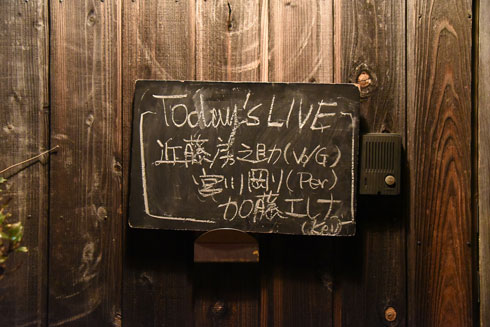 Today's LIVE
近藤房之助(V/G)
宮川剛(Per)
加藤エレナ
(Key)